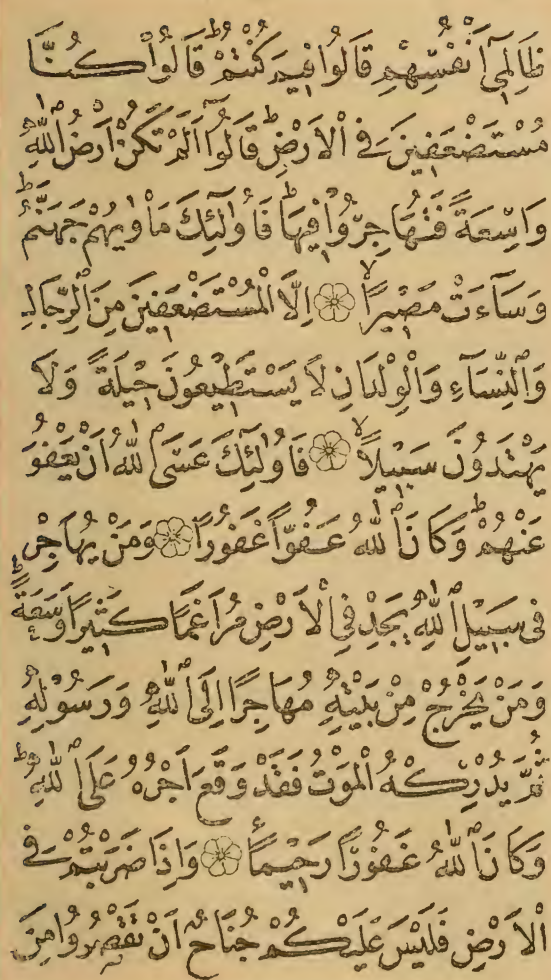 ظَالِمِىٓ اَنْفُسِهِمْ قَالُوا فِيمَ كُنْتُمْ ۜ قَالُوا كُنَّا
مُسْتَضْعَفِينَ فِى الْاَرْضِ ۜ قَالُوٓا اَلَمْ تَكُنْ اَرْضُ اللّٰهِ
وَاسِعَةً فَتُهَاجِرُوا فِيهَا ۜ فَاُولٰٓئِكَ مَاْوٰيهُمْ جَهَنَّمُ ۜ
وَسَٓاءَتْ مَصِيرًا ۙ اِلَّا الْمُسْتَضْعَفِينَ مِنَ الرِّجَالِ
وَالنِّسَٓاءِ وَالْوِلْدَانِ لَا يَسْتَطِيعُونَ حِيلَةً وَلَا
يَهْتَدُونَ سَبِيلًا ۙ فَاُولٰٓئِكَ عَسَى اللّٰهُ اَنْ يَعْفُوَ
عَنْهُمْ ۜ وَكَانَ اللّٰهُ عَفُوًّا غَفُورًا وَمَنْ يُهَاجِرْ
فِى سَبِيلِ اللّٰهِ يَجِدْ فِى الْاَرْضِ مُرَاغَمًا كَثِيرًا وَسَعَةً ۜ
وَمَنْ يَخْرُجْ مِنْ بَيْتِهِ مُهَاجِرًا اِلَى اللّٰهِ وَرَسُولِهِ
ثُمَّ يُدْرِكْهُ الْمَوْتُ فَقَدْ وَقَعَ اَجْرُهُ عَلَى اللّٰهِ ۜ
وَكَانَ اللّٰهُ غَفُورًا رَحِيمًا وَاِذَا ضَرَبْتُمْ فِى
الْاَرْضِ فَلَيْسَ عَلَيْكُمْ جُنَاحٌ اَنْ تَقْصُرُوا مِنَ